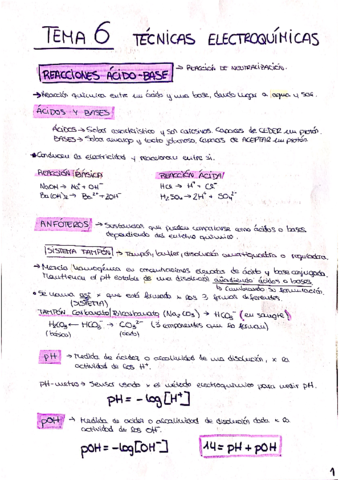 TEMA 6 TÉCNICAS ELECTROQUÍMICAS
REACCIONES ÁCIDO-BASE → REACCIÓN DE NEUTRALIZACIÓN.
→ Reacción química entre un ácido y una base, dando lugar a agua y sal.
ÁCIDOS Y BASES
ÁCIDOS → Sabor característico y son Capaces de CEDER un protón.
BASES → Sabor amargo y tacto jabonoso, capaces de ACEPTAR un protón.
→ Conducen la electricidad y reaccionan entre sí.
REACCIÓN BÁSICA REACCIÓN ÁCIDA
NaOH → Na⁺ + OH⁻ HCl → H⁺ + Cl⁻
Ba(OH)₂ → Ba²⁺ + 2OH⁻ H₂SO₄ → 2H⁺ + SO₄²⁻
ANFÓTEROS → Sustancias que pueden comportarse como ácidos o bases
dependiendo del entorno químico.
SISTEMA TAMPÓN → Tampón, buffer, disolución amortiguadora o reguladora.
→ Mezcla homogénea en concentraciones elevadas de ácido y base conjugada.
Mantiene el pH estable de una disolución añadiendo ácidos o bases.
↳ Cambiando su formulación
• Se llama así x que está formado x sus 3 formas diferentes
(SISTEMA)
TAMPÓN Carbonato/Bicarbonato (Na₂CO₃) → HCO₃⁻ (en sangre)
H₂CO₃ ← HCO₃⁻ → CO₃²⁻ (3 componentes que se forman)
(básico) (ácido)
pH → Medida de acidez o alcalinidad de una disolución, x la
actividad de los H⁺.
pH-metro → Sensor usado x el método electroquímico para medir pH.
pH = -log[H⁺]
pOH → Medida de acidez o alcalinidad de disolución dada x la
actividad de los OH⁻.
pOH = -log[OH⁻] 14 = pH + pOH
1